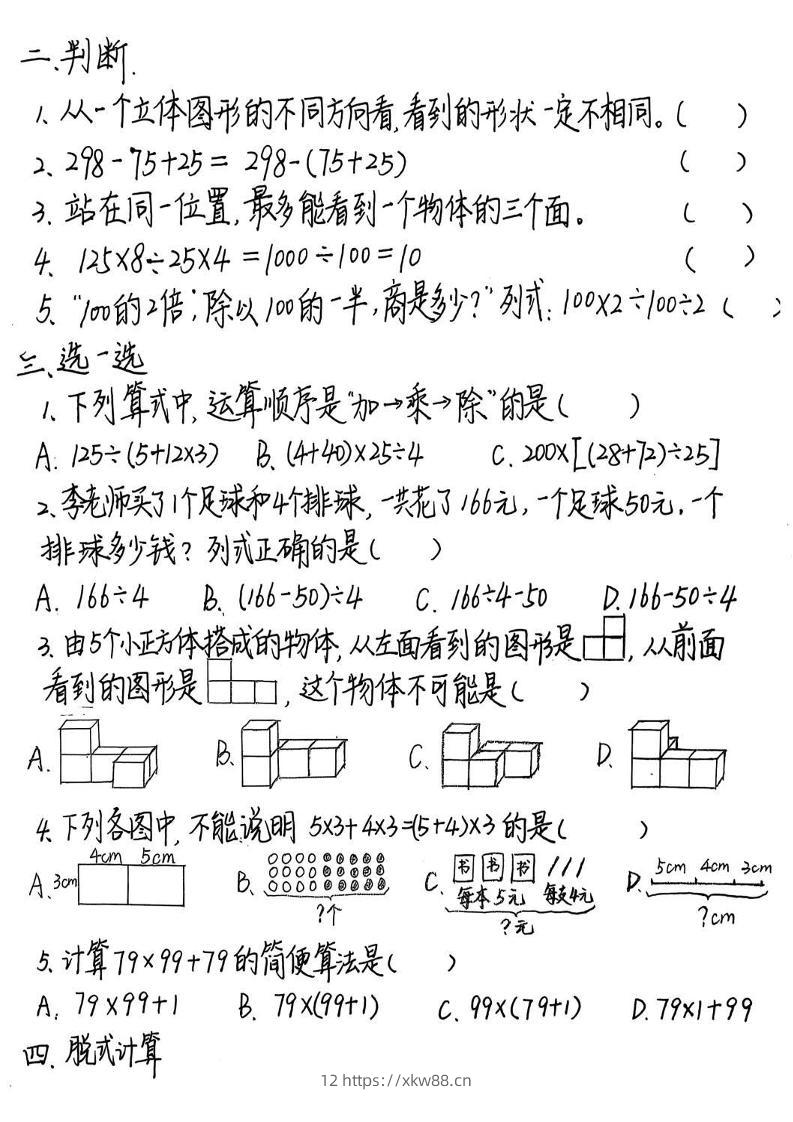 二、判断.
1、从一个立体图形的不同方向看,看到的形状一定不相同。(  )
2、298-75+25= 298-(75+25) (  )
3、站在同一位置,最多能看到一个物体的三个面。 (  )
4、125×8÷25×4 =1000÷100=10 (  )
5、"100的2倍,除以100的一半,商是多少?"列式:100×2÷100÷2 (  )
三、选一选
1、下列算式中,运算顺序是"加→乘→除"的是(  )
A. 125÷(5+12×3) B. (4+40)×25÷4 C. 200×[(28+72)÷25]
2、李老师买了1个足球和4个排球,一共花了166元,一个足球50元,一个
排球多少钱?列式正确的是(  )
A. 166÷4 B. (166-50)÷4 C. 166÷4-50 D. 166-50÷4
3、由5个小正方体搭成的物体,从左面看到的图形是 ,从前面
看到的图形是 ,这个物体不可能是(  )
A. B. C. D.
4、下列各图中,不能说明 5×3+4×3=(5+4)×3的是(  )
A. 3cm 4cm 5cm B. ?个 C. 书 书 书 每本5元 每支4元 ?元 D. 5cm 4cm 3cm ?cm
5、计算79×99+79的简便算法是(  )
A. 79×99+1 B. 79×(99+1) C. 99×(79+1) D. 79×1+99
四、脱式计算
12 https://xkw88.cn